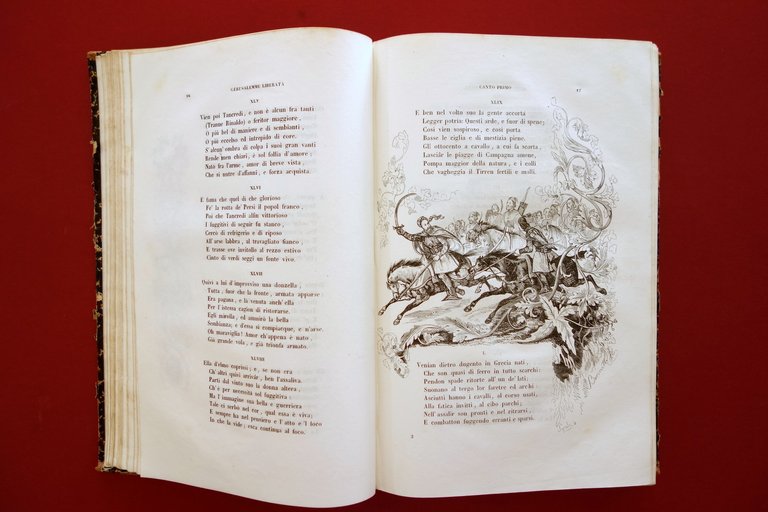 14
GERUSALEMME LIBERATA
XLV
Vien poi Tancredi, e non è alcun fra tanti
(Tranne Rinaldo) o feritor maggiore,
O più bel di maniere e di sembianti,
O più eccelso ed intrepido di core.
S'alcun'ombra di colpa i suoi gran vanti
Rende men chiari, è sol follia d'amore;
Nato fra l'arme, amor di breve vista,
Che si nutre d'affanni, e forza acquista.
XLVI
È fama che quel dì che glorioso
Fe' la rotta de' Persi il popol franco,
Poi che Tancredi alfin vittorioso
I fuggitivi di seguir fu stanco,
Cercò di refrigerio e di riposo
All'arse labbra, al travagliato fianco,
E trasse ove invitollo al rezzo estivo
Cinto di verdi seggi un fonte vivo.
XLVII
Quivi a lui d'improvviso una donzella,
Tutta, fuor che la fronte, armata apparse
Era pagana, e là venuta anch'ella
Per l'istessa cagion di ristorarse.
Egli mirolla, ed ammirò la bella
Sembianza; e d'essa si compiacque, e n'arse.
Oh maraviglia! Amor ch'appena è nato,
Già grande vola, e già trionfa armato.
XLVIII
Ella d'elmo coprissi; e, se non era
Ch'altri quivi arrivâr, ben l'assaliva.
Partì dal vinto suo la donna altera,
Ch'è per necessità sol fuggitiva;
Ma l'immagine sua bella e guerriera
Tale ei serbò nel cor, qual essa è viva;
E sempre ha nel pensiero e l'atto e 'l loco
In che la vide; esca continua al foco.
CANTO PRIMO
17
XLIX
E ben nel volto suo la gente accorta
Legger potria: Questi arde, e fuor di spene;
Così vien sospiroso, e così porta
Basse le ciglia e di mestizia piene.
Gli ottocento a cavallo, a cui fa scorta,
Lasciâr le piagge di Campagna amene,
Pompa maggior della natura, e i colli
Che vagheggia il Tirren fertili e molli.
L
Venian dietro dugento in Grecia nati,
Che son quasi di ferro in tutto scarchi:
Pendon spade ritorte all'un de' lati;
Suonano al tergo lor faretre ed archi;
Asciutti hanno i cavalli, al corso usati,
Alla fatica invitti, al cibo parchi;
Nell'assalir son pronti e nel ritrarsi,
E combatton fuggendo erranti e sparsi.
2